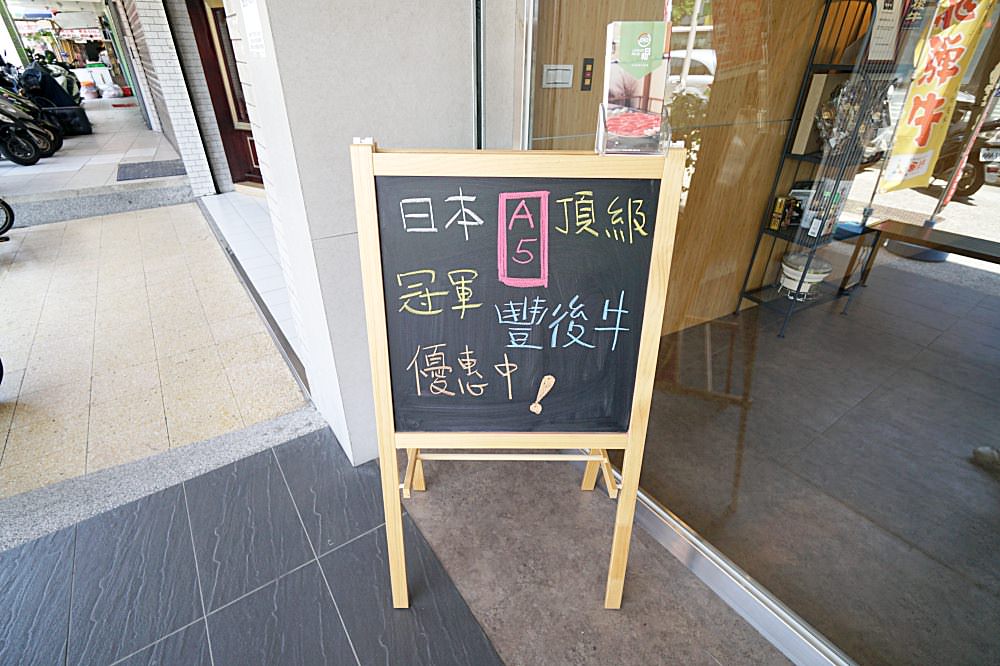 日本A5頂級
冠軍豐後牛
優惠中!